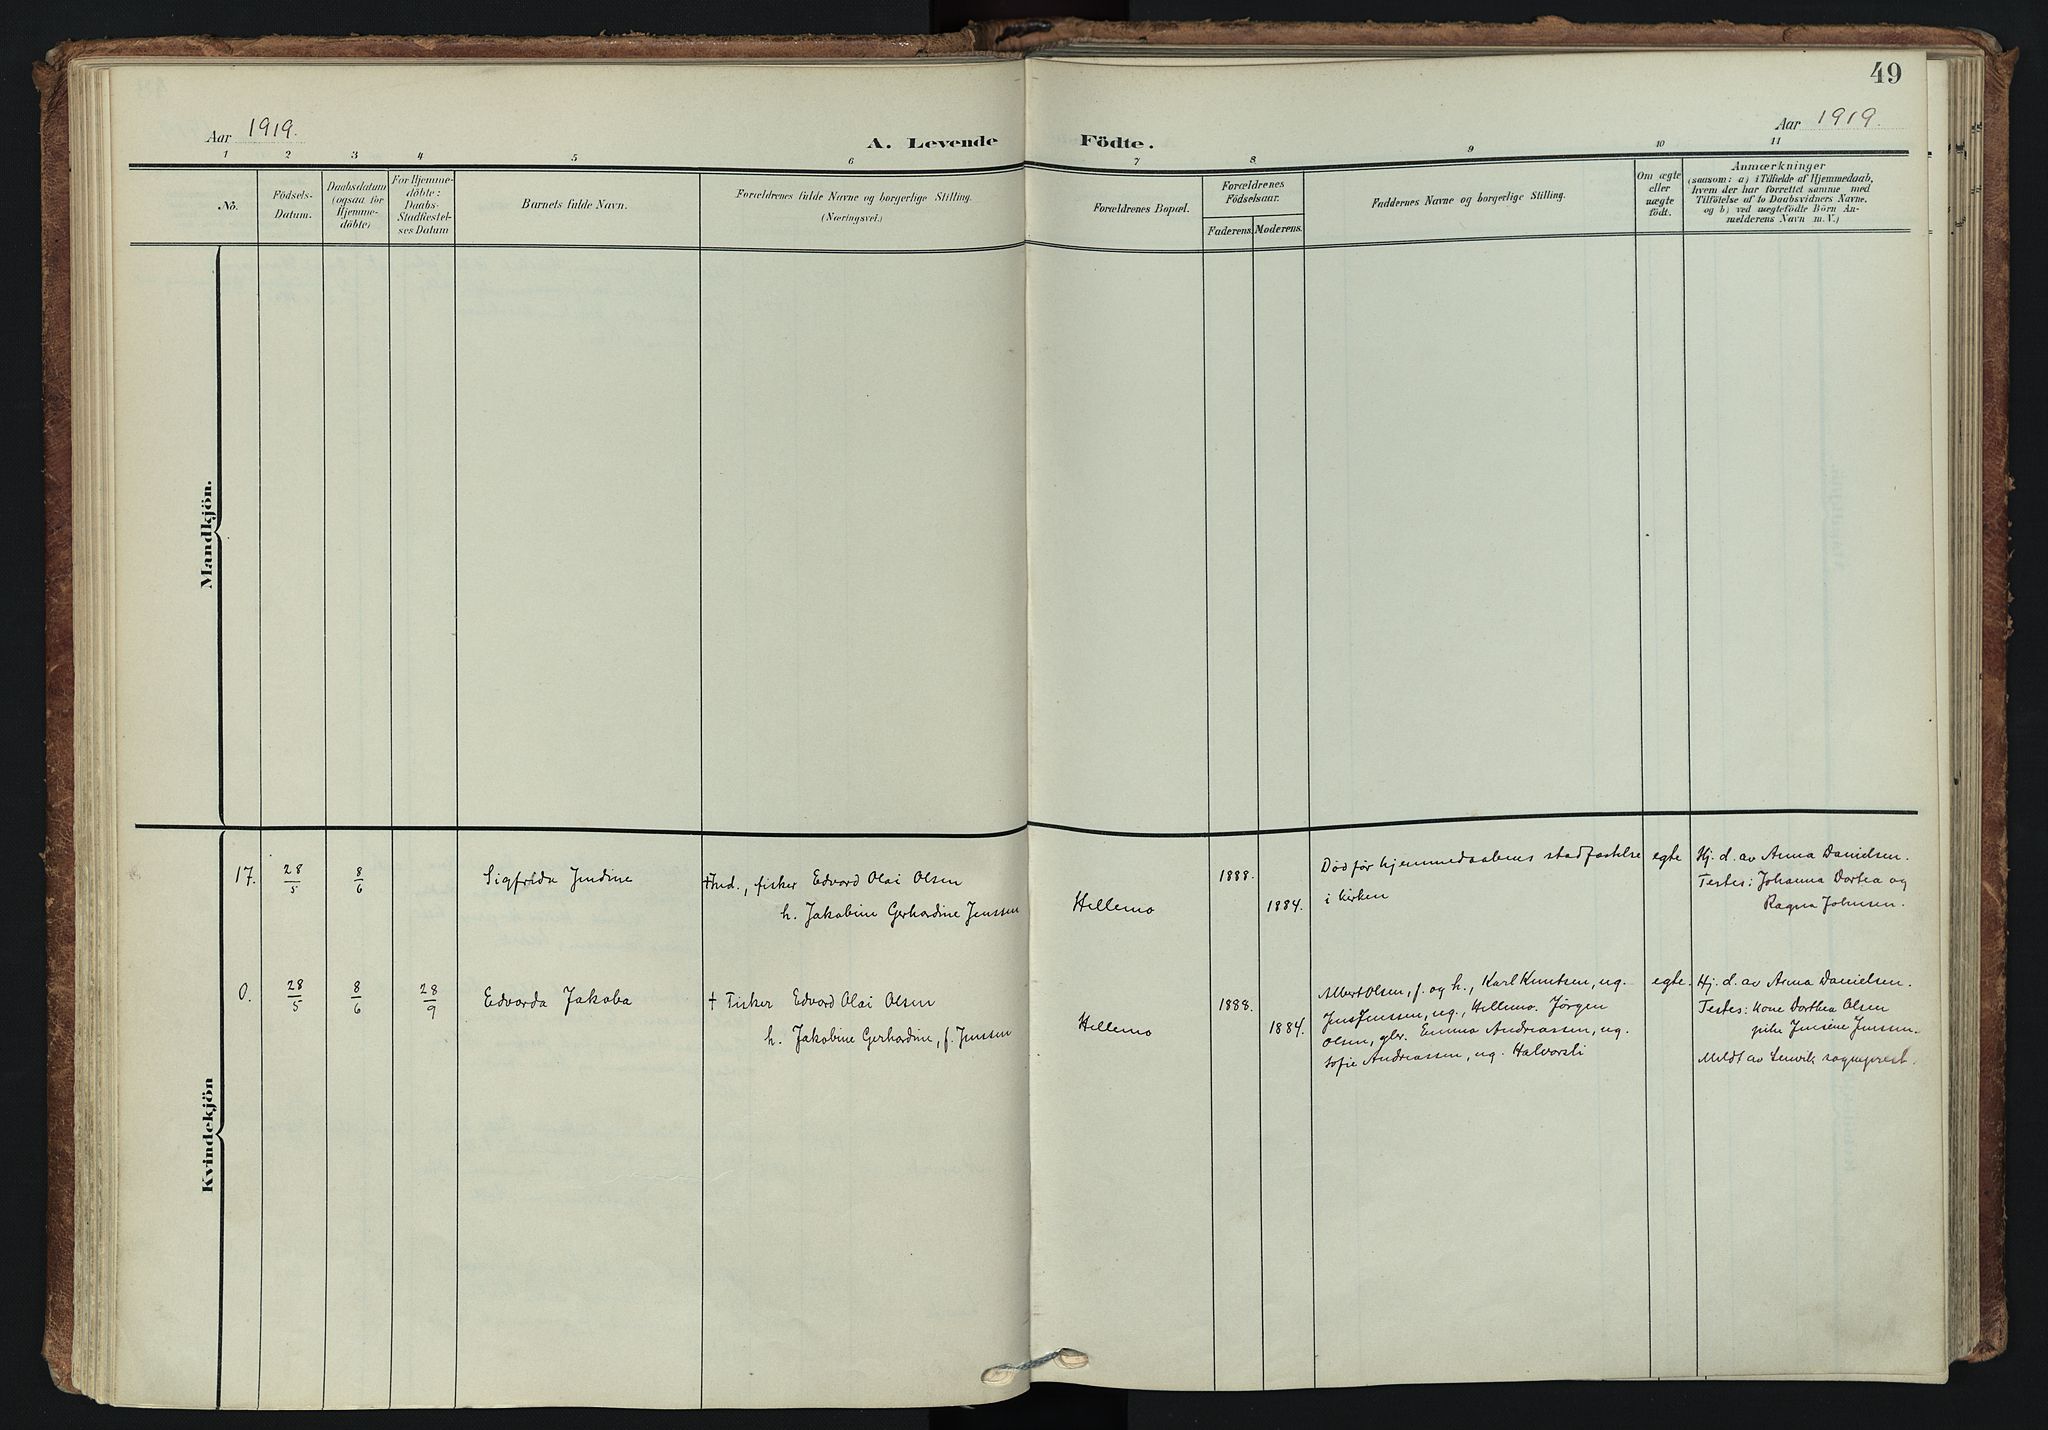 49
Aar 1919.
A. Levende Födte.
Aar 1919.
1 2 3 4 5 6 7 8 9 10 11
No.
Födsels-
Datum.
Daabsdatum
(ogsaa for
Hjemme-
döbte)
For Hjemme-
döbte:
Daabs-
Stadfæstel-
ses Datum
Barnets fulde Navn.
Forældrenes fulde Navne og borgerlige Stilling.
(Næringsvei.)
Forældrenes Bopæl.
Forældrenes
Födselsaar.
Faderens. Moderens.
Faddernes Navne og borgerlige Stilling.
Om ægte
eller
uægte
födt.
Anmærkninger
(saasom: a) i Tilfælde af Hjemmedaab,
hvem der har forrettet samme, med
Tilföielse af to Daabsvidners Navne,
og b) ved uægtefödte Börn An-
melderens Navn m. V.)
Mandkjön.
Kvindekjön
17.
28/5
8/6
Sigfrida Jendine
Ind., fisker Edvard Olai Olsen
h. Jakobine Gerhardine Jenssen
Hellemo
1888.
1884.
Død før hjemmedaabens stadfæstelse
i kirken
egte
Hj. d. av Anna Danielsen.
Testes: Johanna Dortea og
Ragna Johnsen.
0.
28/5
8/6
28/9
Edvarda Jakoba
+ Fisker Edvard Olai Olsen
h. Jakobine Gerhardine, f. Jenssen
Hellemo
1888.
1884.
Albert Olsen, f. og h., Karl Knutsen, ug.
Jens Jenssen, ug., Hellemo. Jørgen
Olsen, gbr. Emma Andreassen, ug.
Sofie Andreassen, ug. Halvorsli
egte.
Hj. d. av Anna Danielsen.
Testes: Kone Dorthea Olsen
pike Jensine Jenssen.
Meldt av Lenvik sogneprest.